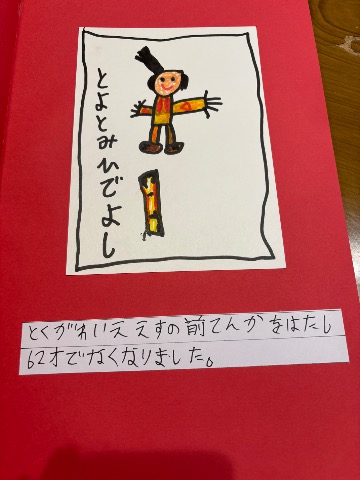 とよとみひでよし
とくがわいええすの前てんかをはたし
62才でなくなりました。